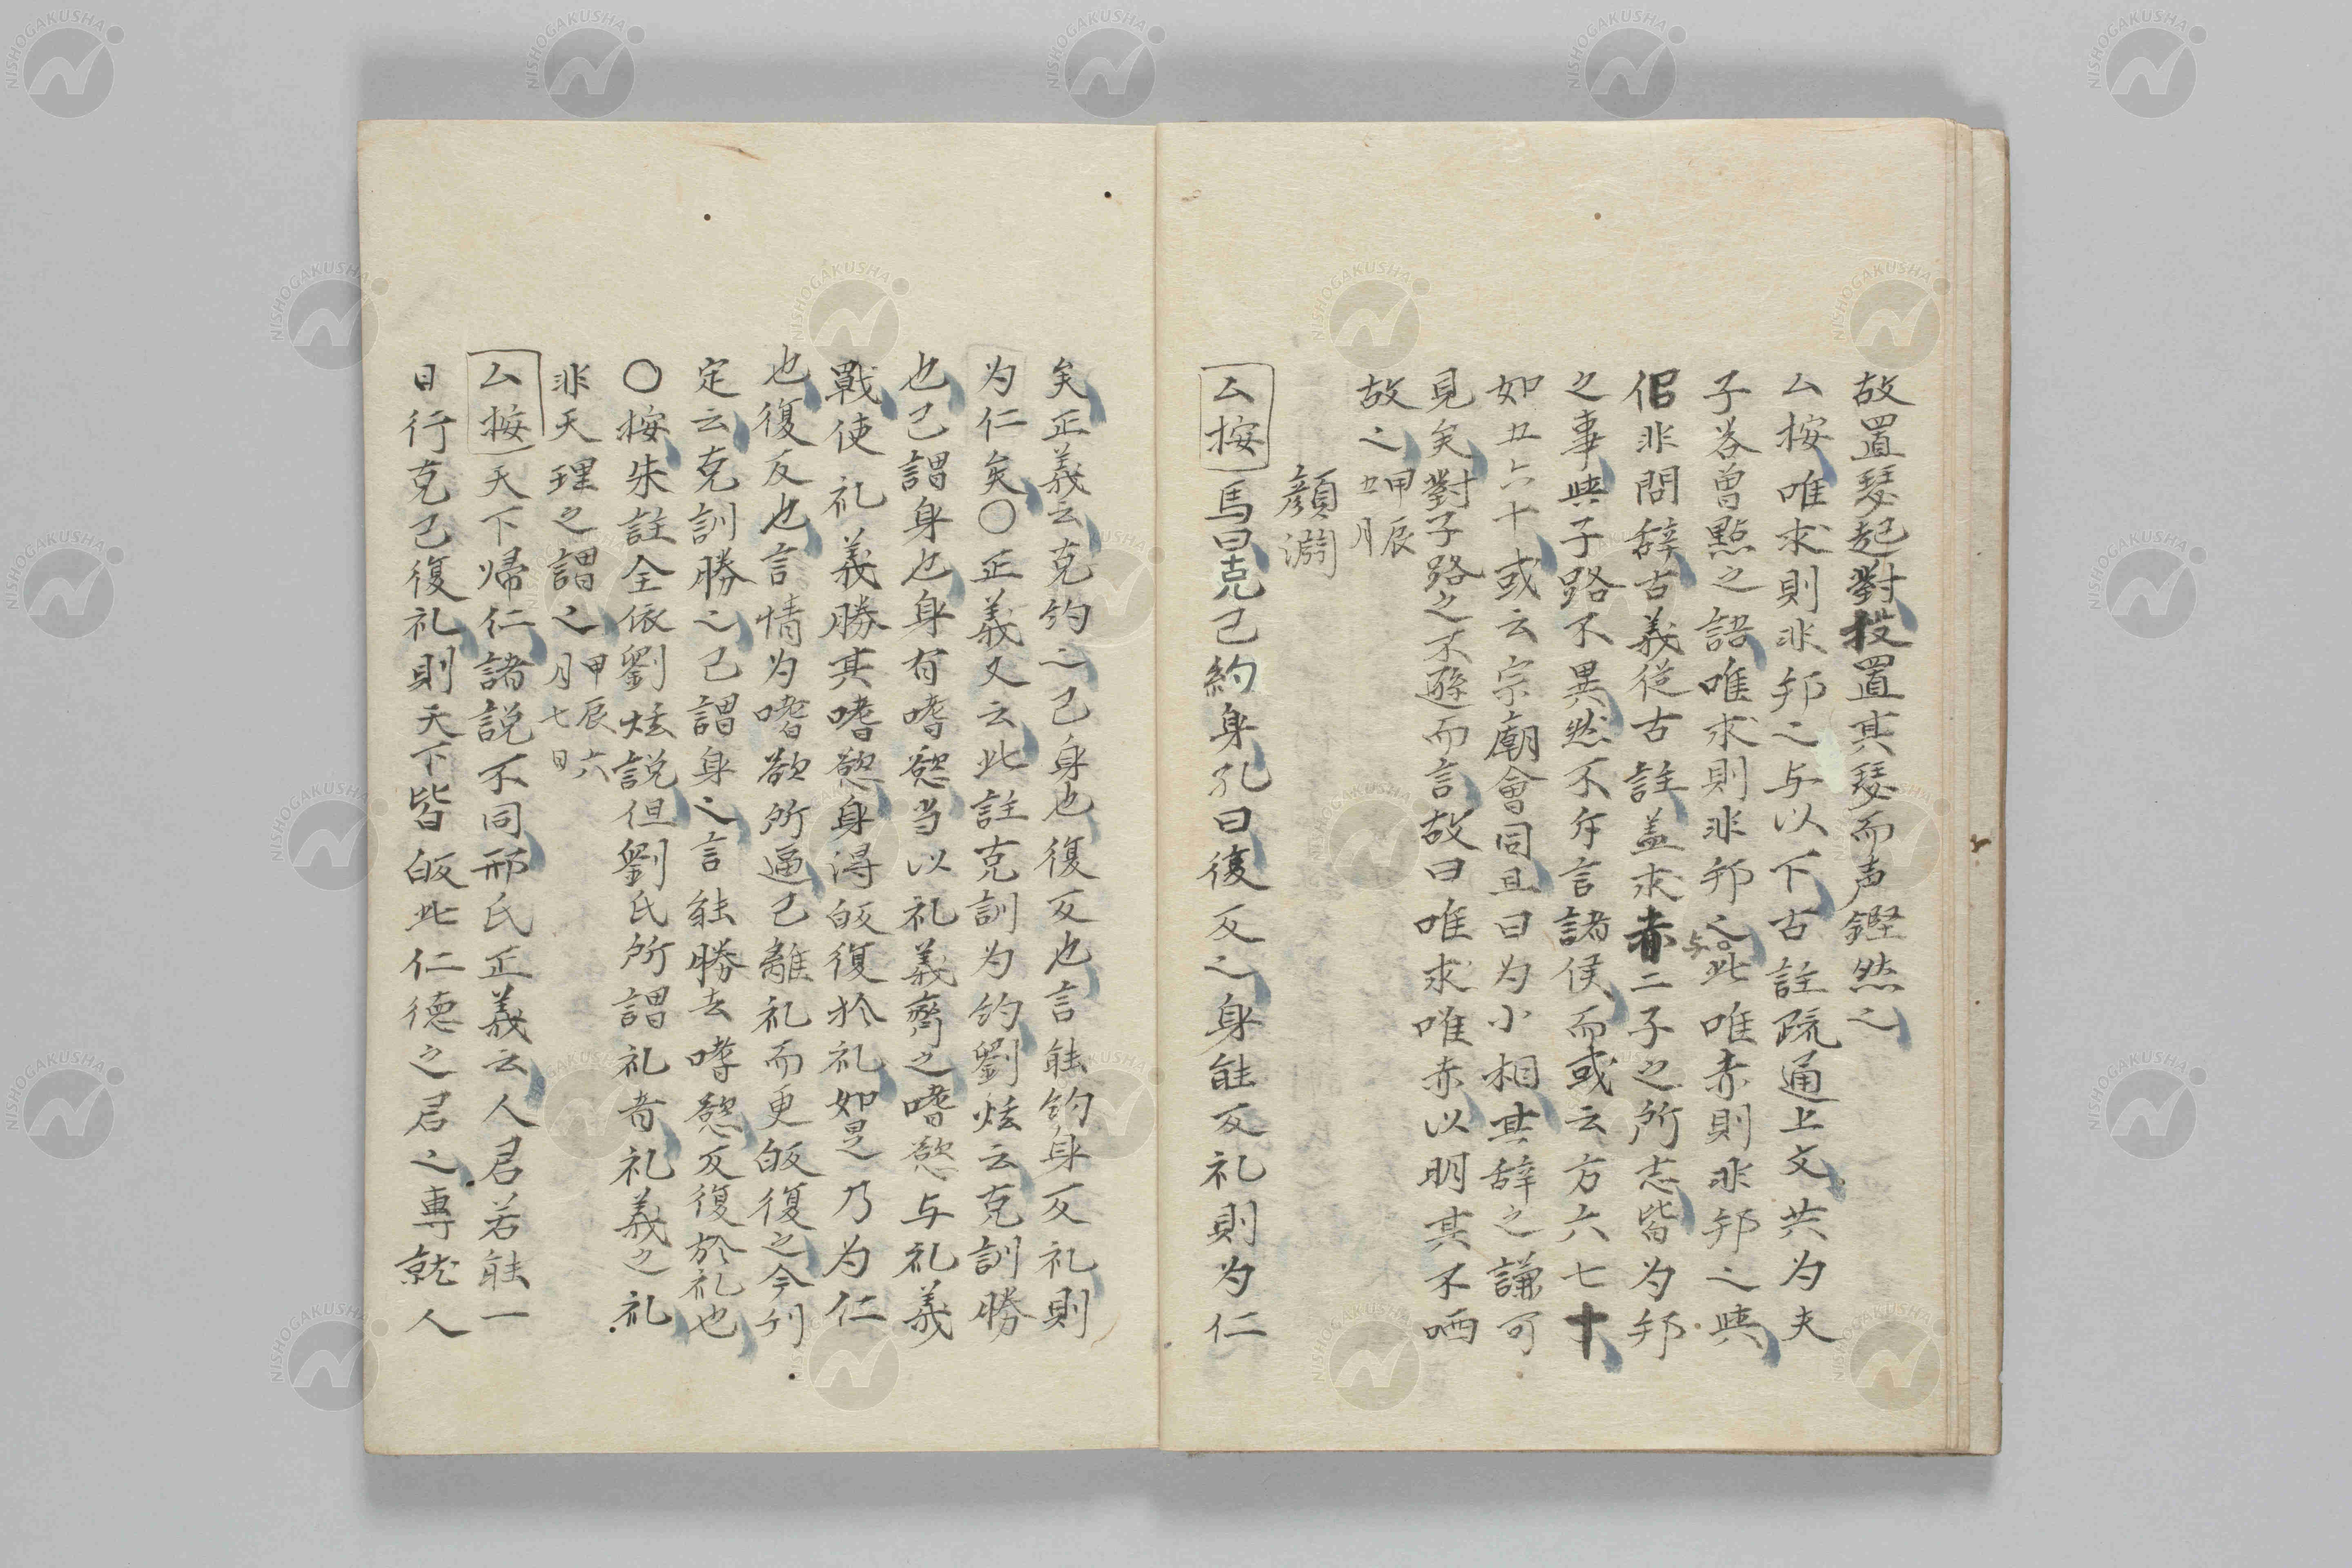 故置瑟起對投置其瑟而声鏗然之
厶按唯求則非邦之与以下古註疏通上文共为夫
子答曽點之語唯求則非邦之与此唯赤則非邦之與
但非問辞古義従古註盖求赤二子之所志皆为邦
之事與子路不異然不斥言諸侯而或云方六七十
如五六十或云宗廟會同且曰为小相其辞之謙可
見矣對子路之不遜而言故曰唯求唯赤以明其不哂
故之甲辰五月
顔淵
厶按馬曰克己約身孔曰復反之身能反礼則为仁
矣正義云克約之己身也復反也言能約身反礼則
为仁矣〇正義又云此註克訓为約劉炫云克訓勝
也己謂身也身有嗜慾当以礼義齊之嗜慾与礼義
戰使礼義勝其嗜慾身得皈復於礼如是乃为仁
也復反也言情为嗜欲所逼己離礼而更皈復之今刊
定云克訓勝之己謂身之言能勝去嗜慾反復於礼也
〇按朱註全依劉炫説但劉氏所謂礼者礼義之礼
非天理之謂之甲辰六月七日
厶按天下帰仁諸説不同邢氏正義云人君若能一
日行克己復礼則天下皆皈此仁徳之君之專就人
NISHOGAKUSHA